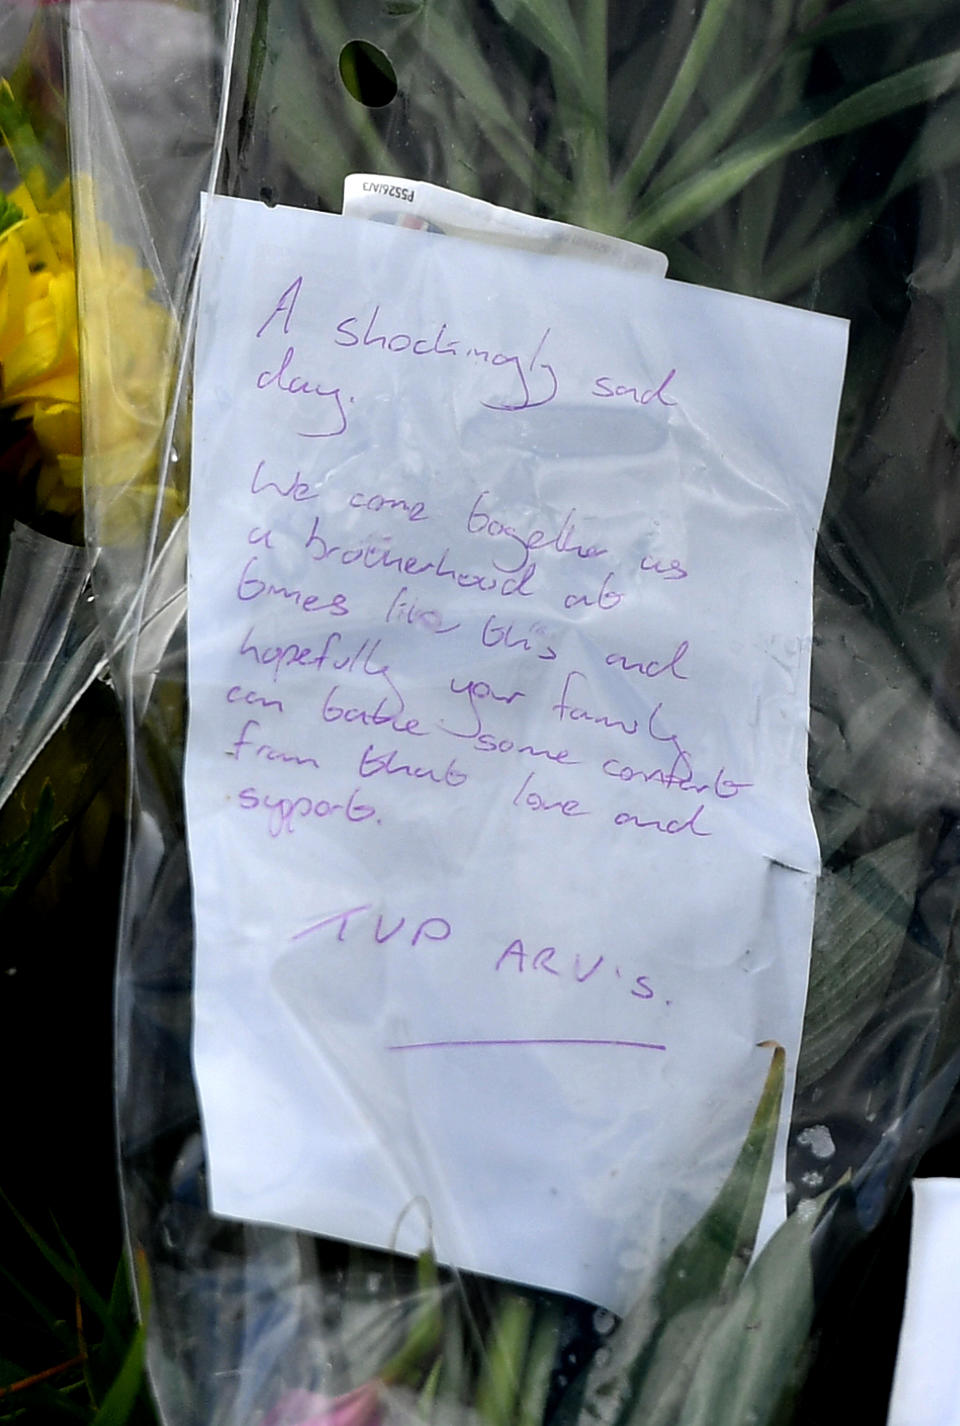 PSS26/A/3
A shockingly sad
day.
We come together as
a brotherhood at
times like this and
hopefully your family
can take some comfort
from that love and
support.
TVP ARV's.